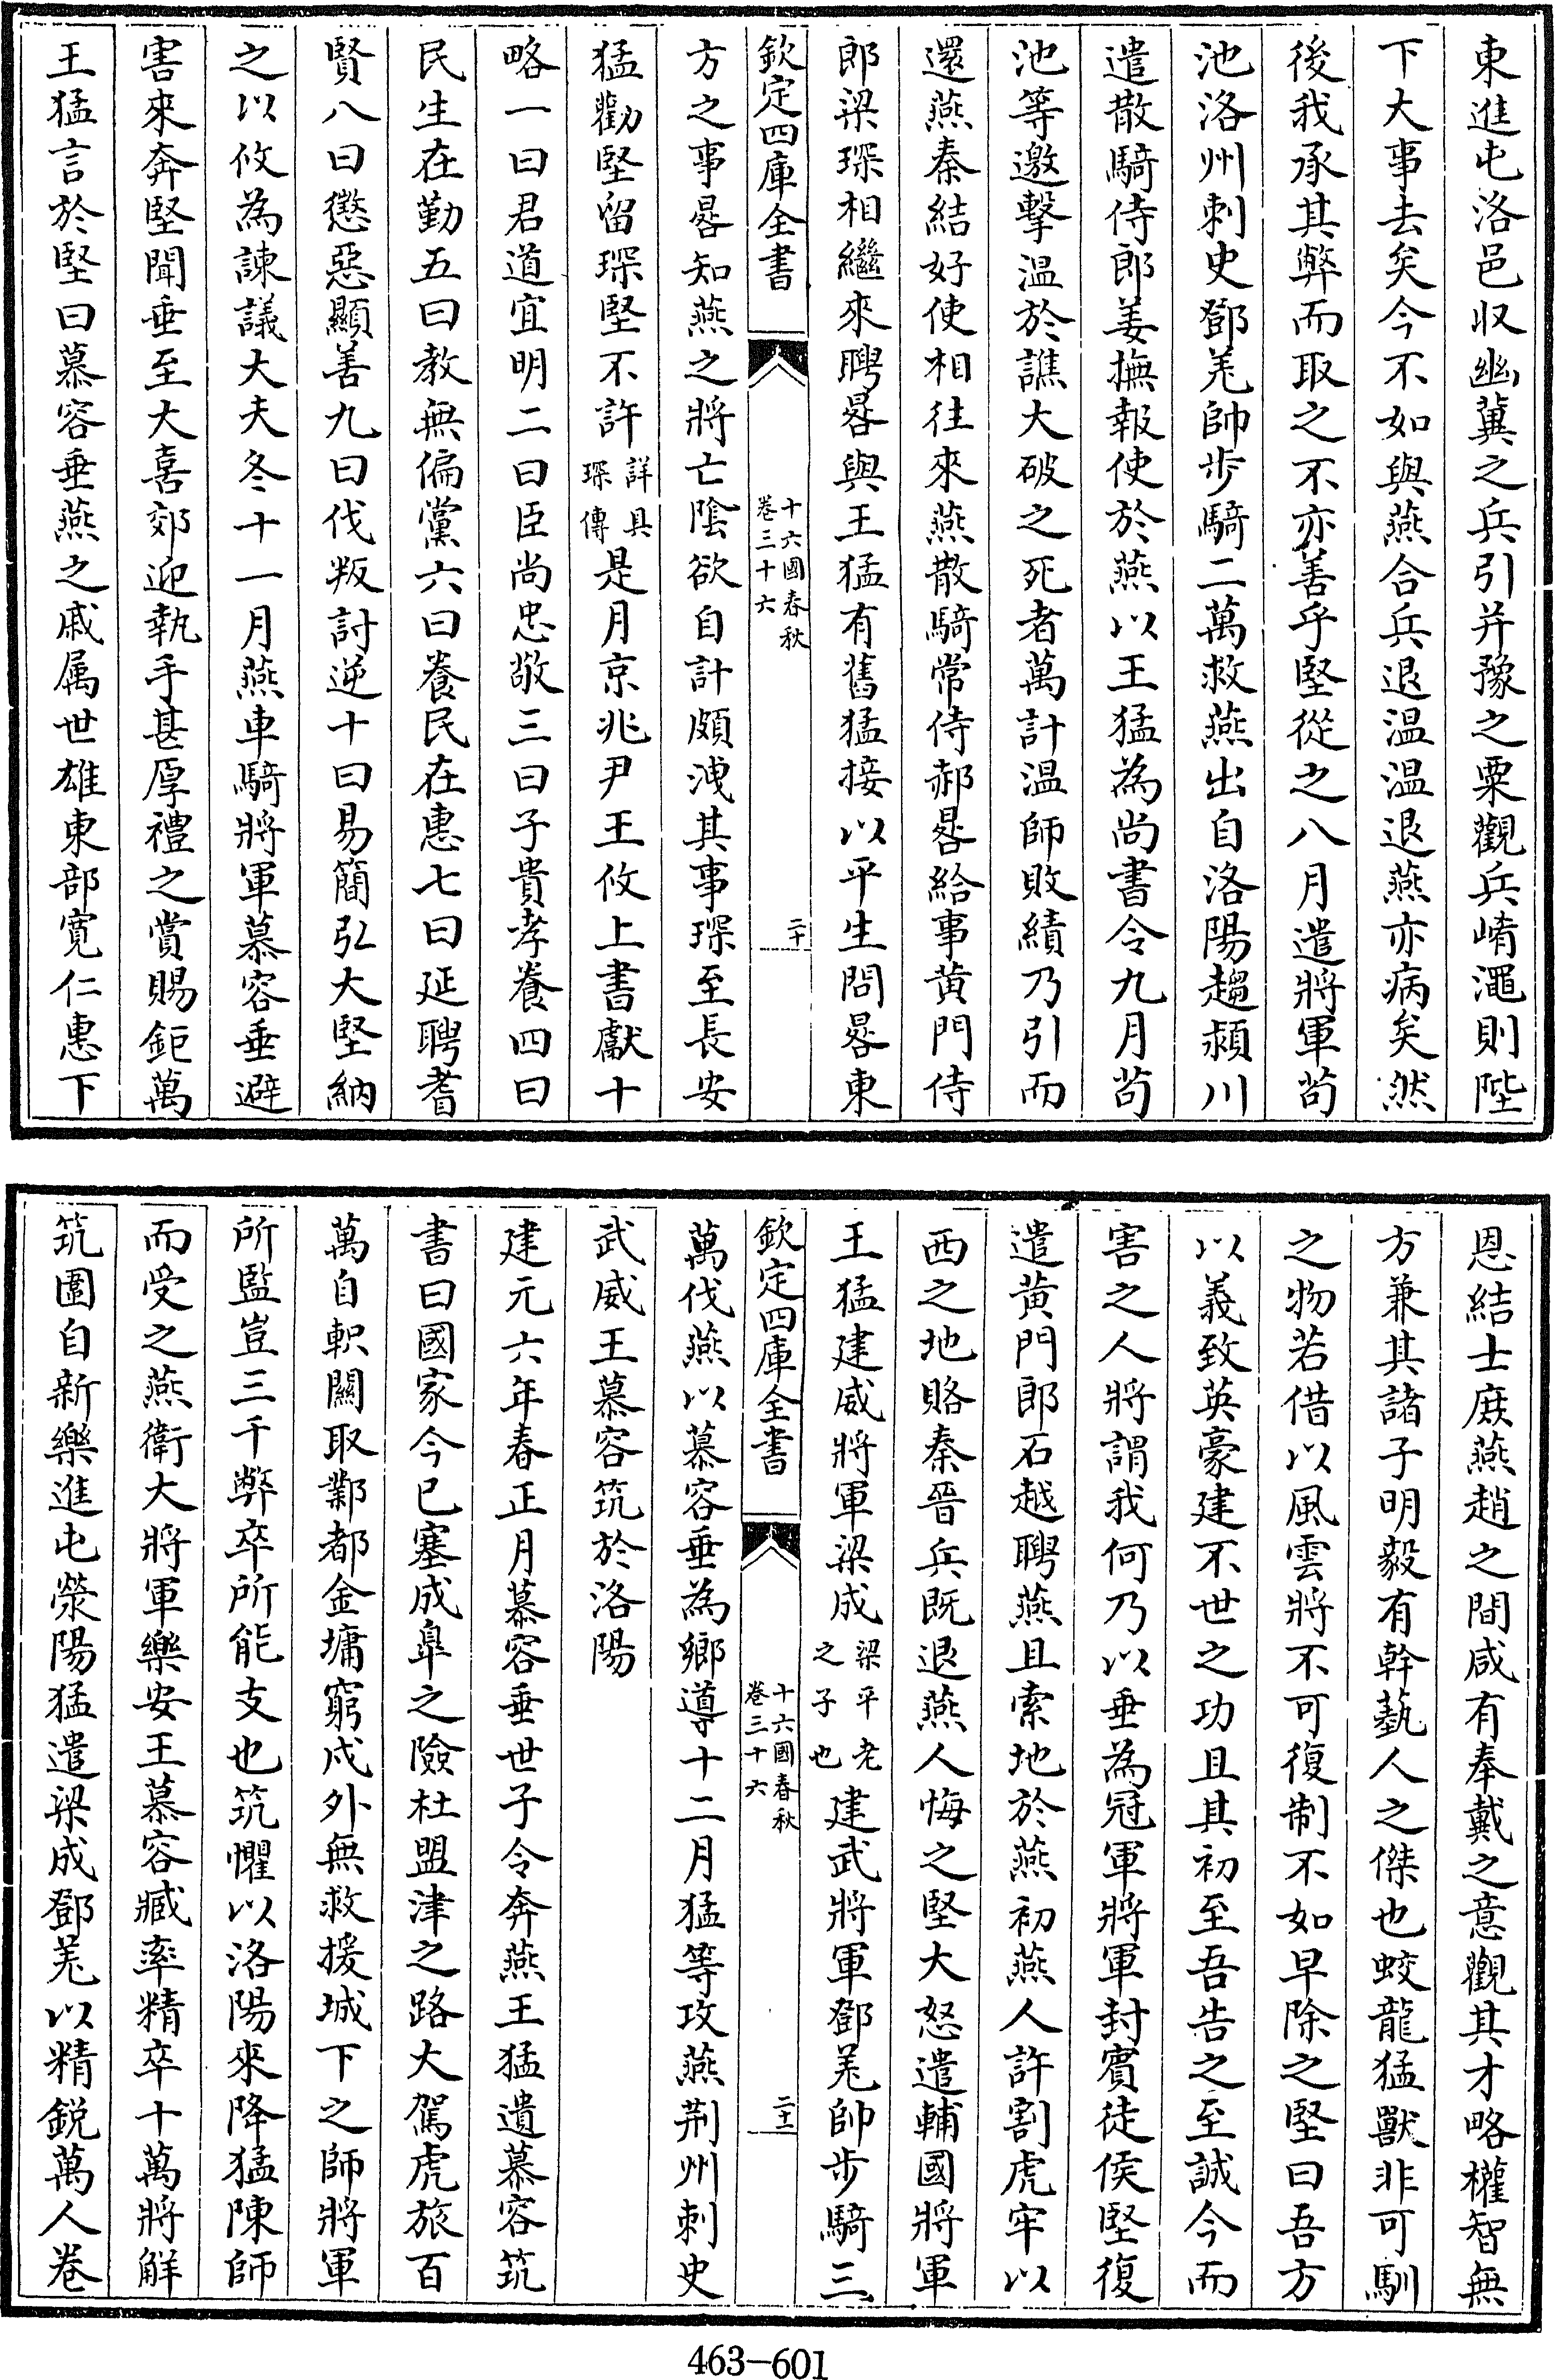 東進屯洛邑収幽冀之兵引并豫之粟觀兵崤澠則陛
下大事去矣今不如與燕合兵退温温退燕亦病矣然
後我承其弊而取之不亦善乎堅從之八月遣將軍苟
池洛州刺史鄧羌帥步騎二萬救燕出自洛陽趨潁川
遣散騎侍郎姜撫報使於燕以王猛為尚書令九月苟
池等邀擊温於譙大破之死者萬計温師敗績乃引而
還燕秦結好使相往來燕散騎常侍郝晷給事黄門侍
郎梁琛相繼來聘晷與王猛有舊猛接以平生問晷東
欽定四庫全書
十六國春秋
卷三十六
二十
方之事晷知燕之將亡陰欲自計頗洩其事琛至長安
猛勸堅留琛堅不許詳具琛傳是月京兆尹王攸上書獻十
略一曰君道宜明二曰臣尚忠敬三曰子貴孝養四曰
民生在勤五曰教無偏黨六曰養民在惠七曰延聘耆
賢八曰懲惡顯善九曰伐叛討逆十曰易簡弘大堅納
之以攸為諫議大夫冬十一月燕車騎將軍慕容垂避
害來奔堅聞垂至大喜郊迎執手甚厚禮之賞賜鉅萬
王猛言於堅曰慕容垂燕之戚属世雄東部寛仁惠下
恩結士庶燕趙之間咸有奉戴之意觀其才略權智無
方兼其諸子明毅有幹藝人之傑也蛟龍猛獸非可馴
之物若借以風雲將不可復制不如早除之堅曰吾方
以義致英豪建不世之功且其初至吾告之至誠今而
害之人將謂我何乃以垂為冠軍將軍封賓徒侯堅復
遣黄門郎石越聘燕且索地於燕初燕人許割虎牢以
西之地賂秦晉兵既退燕人悔之堅大怒遣輔國將軍
王猛建威將軍梁成梁平老之子也建武將軍鄧羌帥步騎三
欽定四庫全書
十六國春秋
卷三十六
二十一
萬伐燕以慕容垂為鄉導十二月猛等攻燕荆州刺史
武威王慕容筑於洛陽
建元六年春正月慕容垂世子令奔燕王猛遺慕容筑
書曰國家今已塞成臯之險杜盟津之路大駕虎旅百
萬自軹關取鄴都金墉窮戍外無救援城下之師將軍
所監豈三千弊卒所能支也筑懼以洛陽來降猛陳師
而受之燕衛大將軍樂安王慕容臧率精卒十萬將解
筑圍自新樂進屯滎陽猛遣梁成鄧羌以精鋭萬人卷
463-601